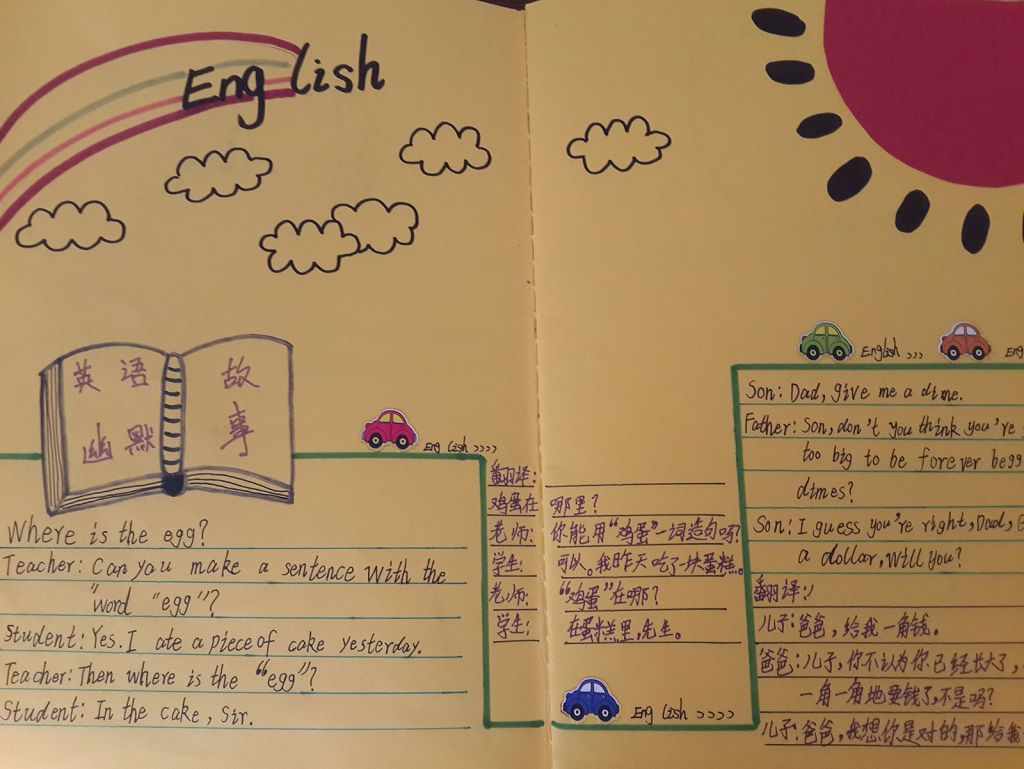 English
英语故
幽默事
English >>>>
Where is the egg?
Teacher: Can you make a sentence with the
"word "egg"?
Student: Yes. I ate a piece of cake yesterday.
Teacher: Then where is the "egg"?
Student: In the cake, Sir.
翻译:
鸡蛋在哪里?
老师: 你能用"鸡蛋"一词造句吗?
学生: 可以。我昨天吃了一块蛋糕。
老师: "鸡蛋"在哪?
学生: 在蛋糕里,先生。
English >>>>
English >>>
Son: Dad, give me a dime.
Father: Son, don't you think you're
too big to be forever begg
dimes?
Son: I guess you're right, Dad,
a dollar, will you?
翻译:
儿子: 爸爸, 给我一角钱。
爸爸: 儿子, 你不认为你已经长大了,
一角一角地要钱了,不是吗?
儿子: 爸爸, 我想你是对的,那给我